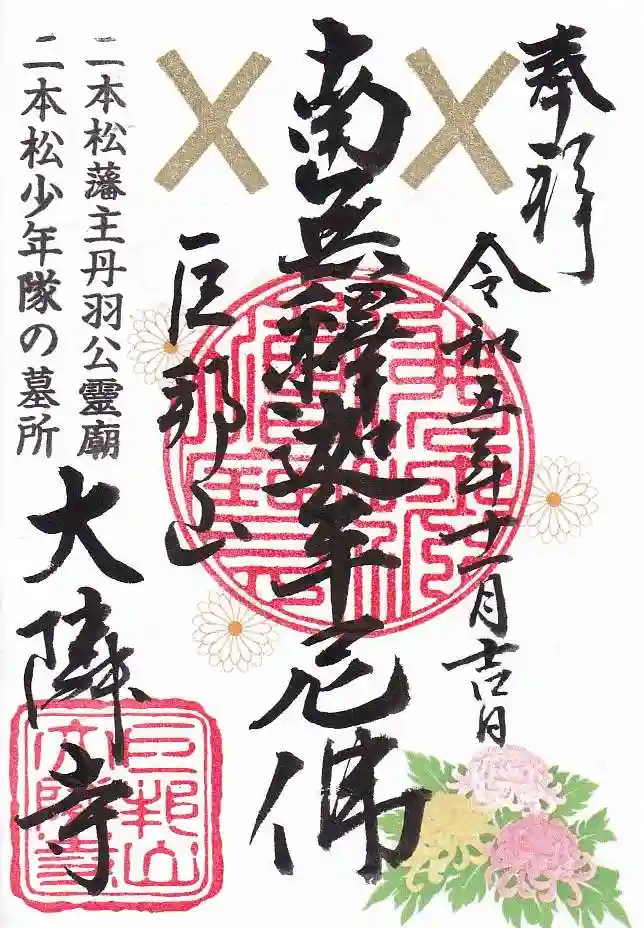 奉拝
令和五年十一月吉日
南無釋迦牟尼佛
巨邦山
二本松藩主丹羽公霊廟
二本松少年隊の墓所
大隣寺